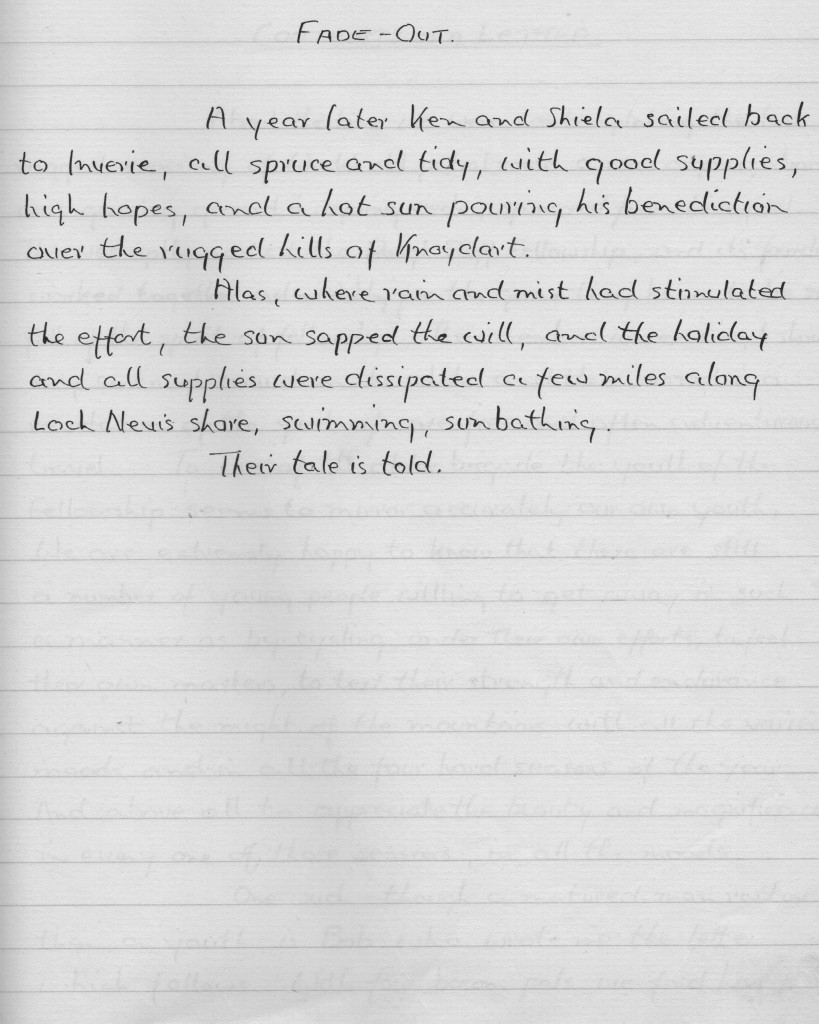 FADE-OUT.
A year later Ken and Shiela sailed back
to Inverie, all spruce and tidy, with good supplies,
high hopes, and a hot sun pouring his benediction
over the rugged hills of Knoydart.
Alas, where rain and mist had stimulated
the effort, the sun sapped the will, and the holiday
and all supplies were dissipated a few miles along
Loch Nevis shore, swimming, sunbathing.
Their tale is told.